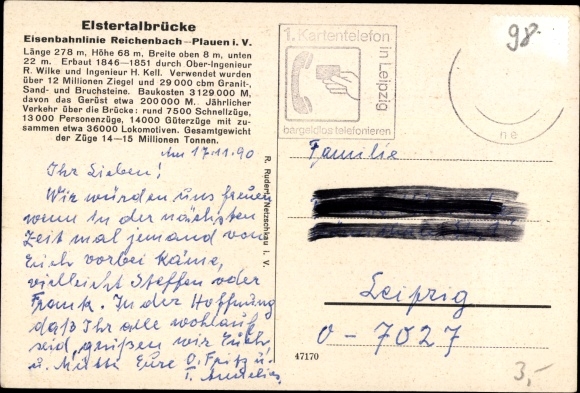 Elstertalbrücke
Eisenbahnlinie Reichenbach—Plauen i. V.
Länge 278 m, Höhe 68 m, Breite oben 8 m, unten
22 m. Erbaut 1846—1851 durch Ober-Ingenieur
R. Wilke und Ingenieur H. Kell. Verwendet wurden
über 12 Millionen Ziegel und 29 000 cbm Granit-,
Sand- und Bruchsteine. Baukosten 3 129 000 M,
davon das Gerüst etwa 200 000 M. Jährlicher
Verkehr über die Brücke: rund 7500 Schnellzüge,
13 000 Personenzüge, 14000 Güterzüge mit zu-
sammen etwa 36000 Lokomotiven. Gesamtgewicht
der Züge 14—15 Millionen Tonnen.
Am 17.11.90
Ihr Lieben!
Wir würden uns freuen
wenn in der nächsten
Zeit mal jemand von
Euch vorbei käme,
vielleicht Steffen oder
Frank. In der Hoffnung
daß Ihr alle wohlauf
seid, grüßen wir Euch
u. Mutti Eure O. Fritz u.
T. Annelies
R. Rudert, Netzschkau i. V.
1. Kartentelefon
in Leipzig
bargeldlos telefonieren
98
ne
Familie
Leipzig
O - 7027
47170
3,-